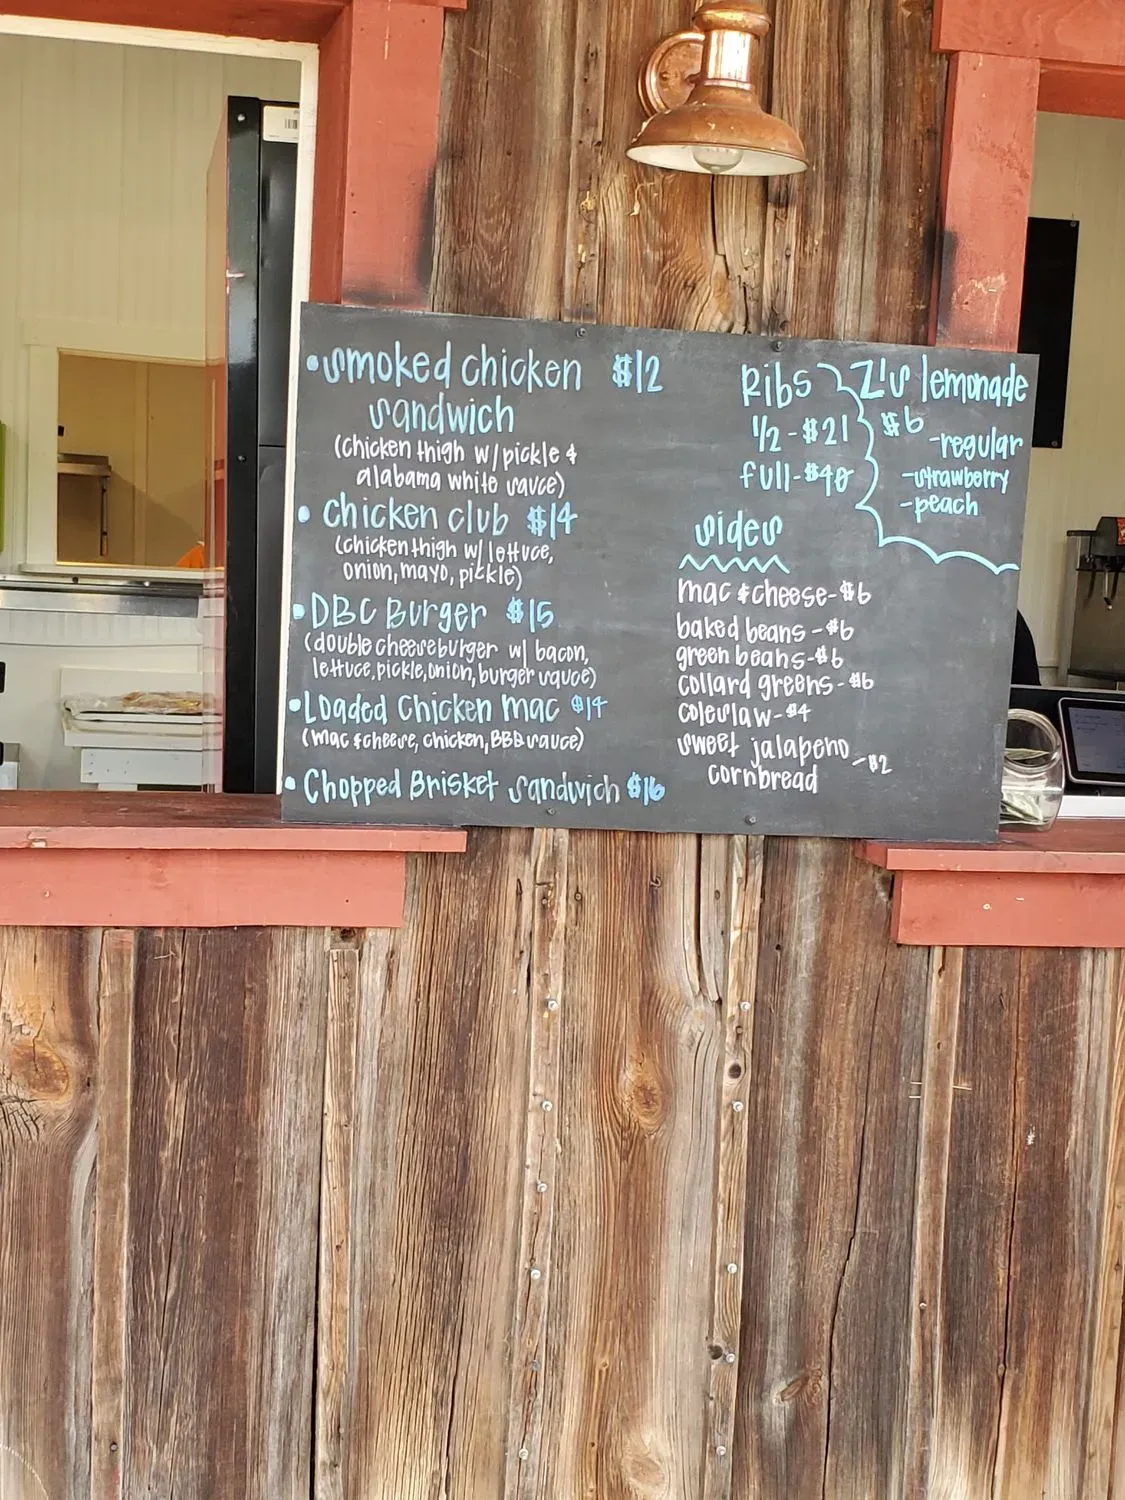 •Smoked Chicken $12
Sandwich
(chicken thigh w/pickle &
alabama white sauce)
• Chicken club $14
(chicken thigh w/ lettuce,
onion, mayo, pickle)
• DBC Burger $15
(double cheeseburger w/ bacon,
lettuce, pickle, onion, burger sauce)
•Loaded Chicken mac $14
(mac & cheese, chicken, BBQ sauce)
• Chopped Brisket Sandwich $16
Ribs
1/2 - $21
full - $40
Z's lemonade
$6
-regular
-strawberry
-peach
Sides
mac & cheese - $6
baked beans - $6
green beans - $6
collard greens - $6
coleslaw - $4
sweet jalapeno - $2
cornbread